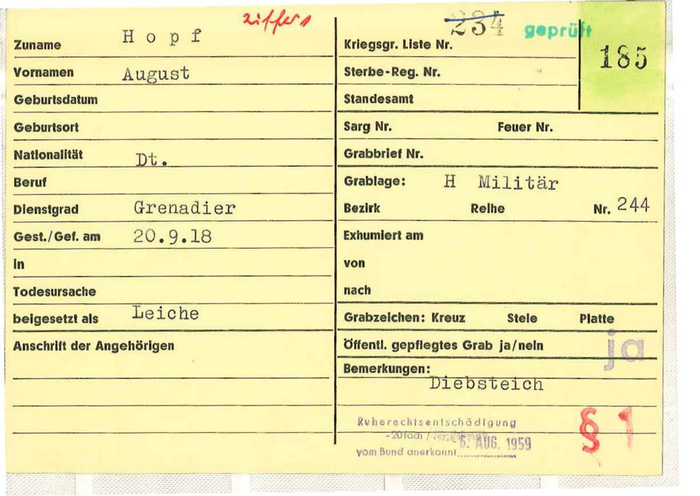 ziffer 1
234 geprüft
185
Zuname H o p f
Kriegsgr. Liste Nr.
Vornamen August
Sterbe-Reg. Nr.
Geburtsdatum
Standesamt
Geburtsort
Sarg Nr. Feuer Nr.
Nationalität Dt.
Grabbrief Nr.
Beruf
Grablage: H Militär
Dienstgrad Grenadier
Bezirk Reihe Nr. 244
Gest./Gef. am 20.9.18
Exhumiert am
in
von
Todesursache
nach
beigesetzt als Leiche
Grabzeichen: Kreuz Stele Platte
Anschrift der Angehörigen
Öffentl. gepflegtes Grab ja/nein ja
Bemerkungen:
Diebsteich
Ruherechtsentschädigung
-20fach /
6. AUG. 1959
vom Bund anerkannt
§ 1